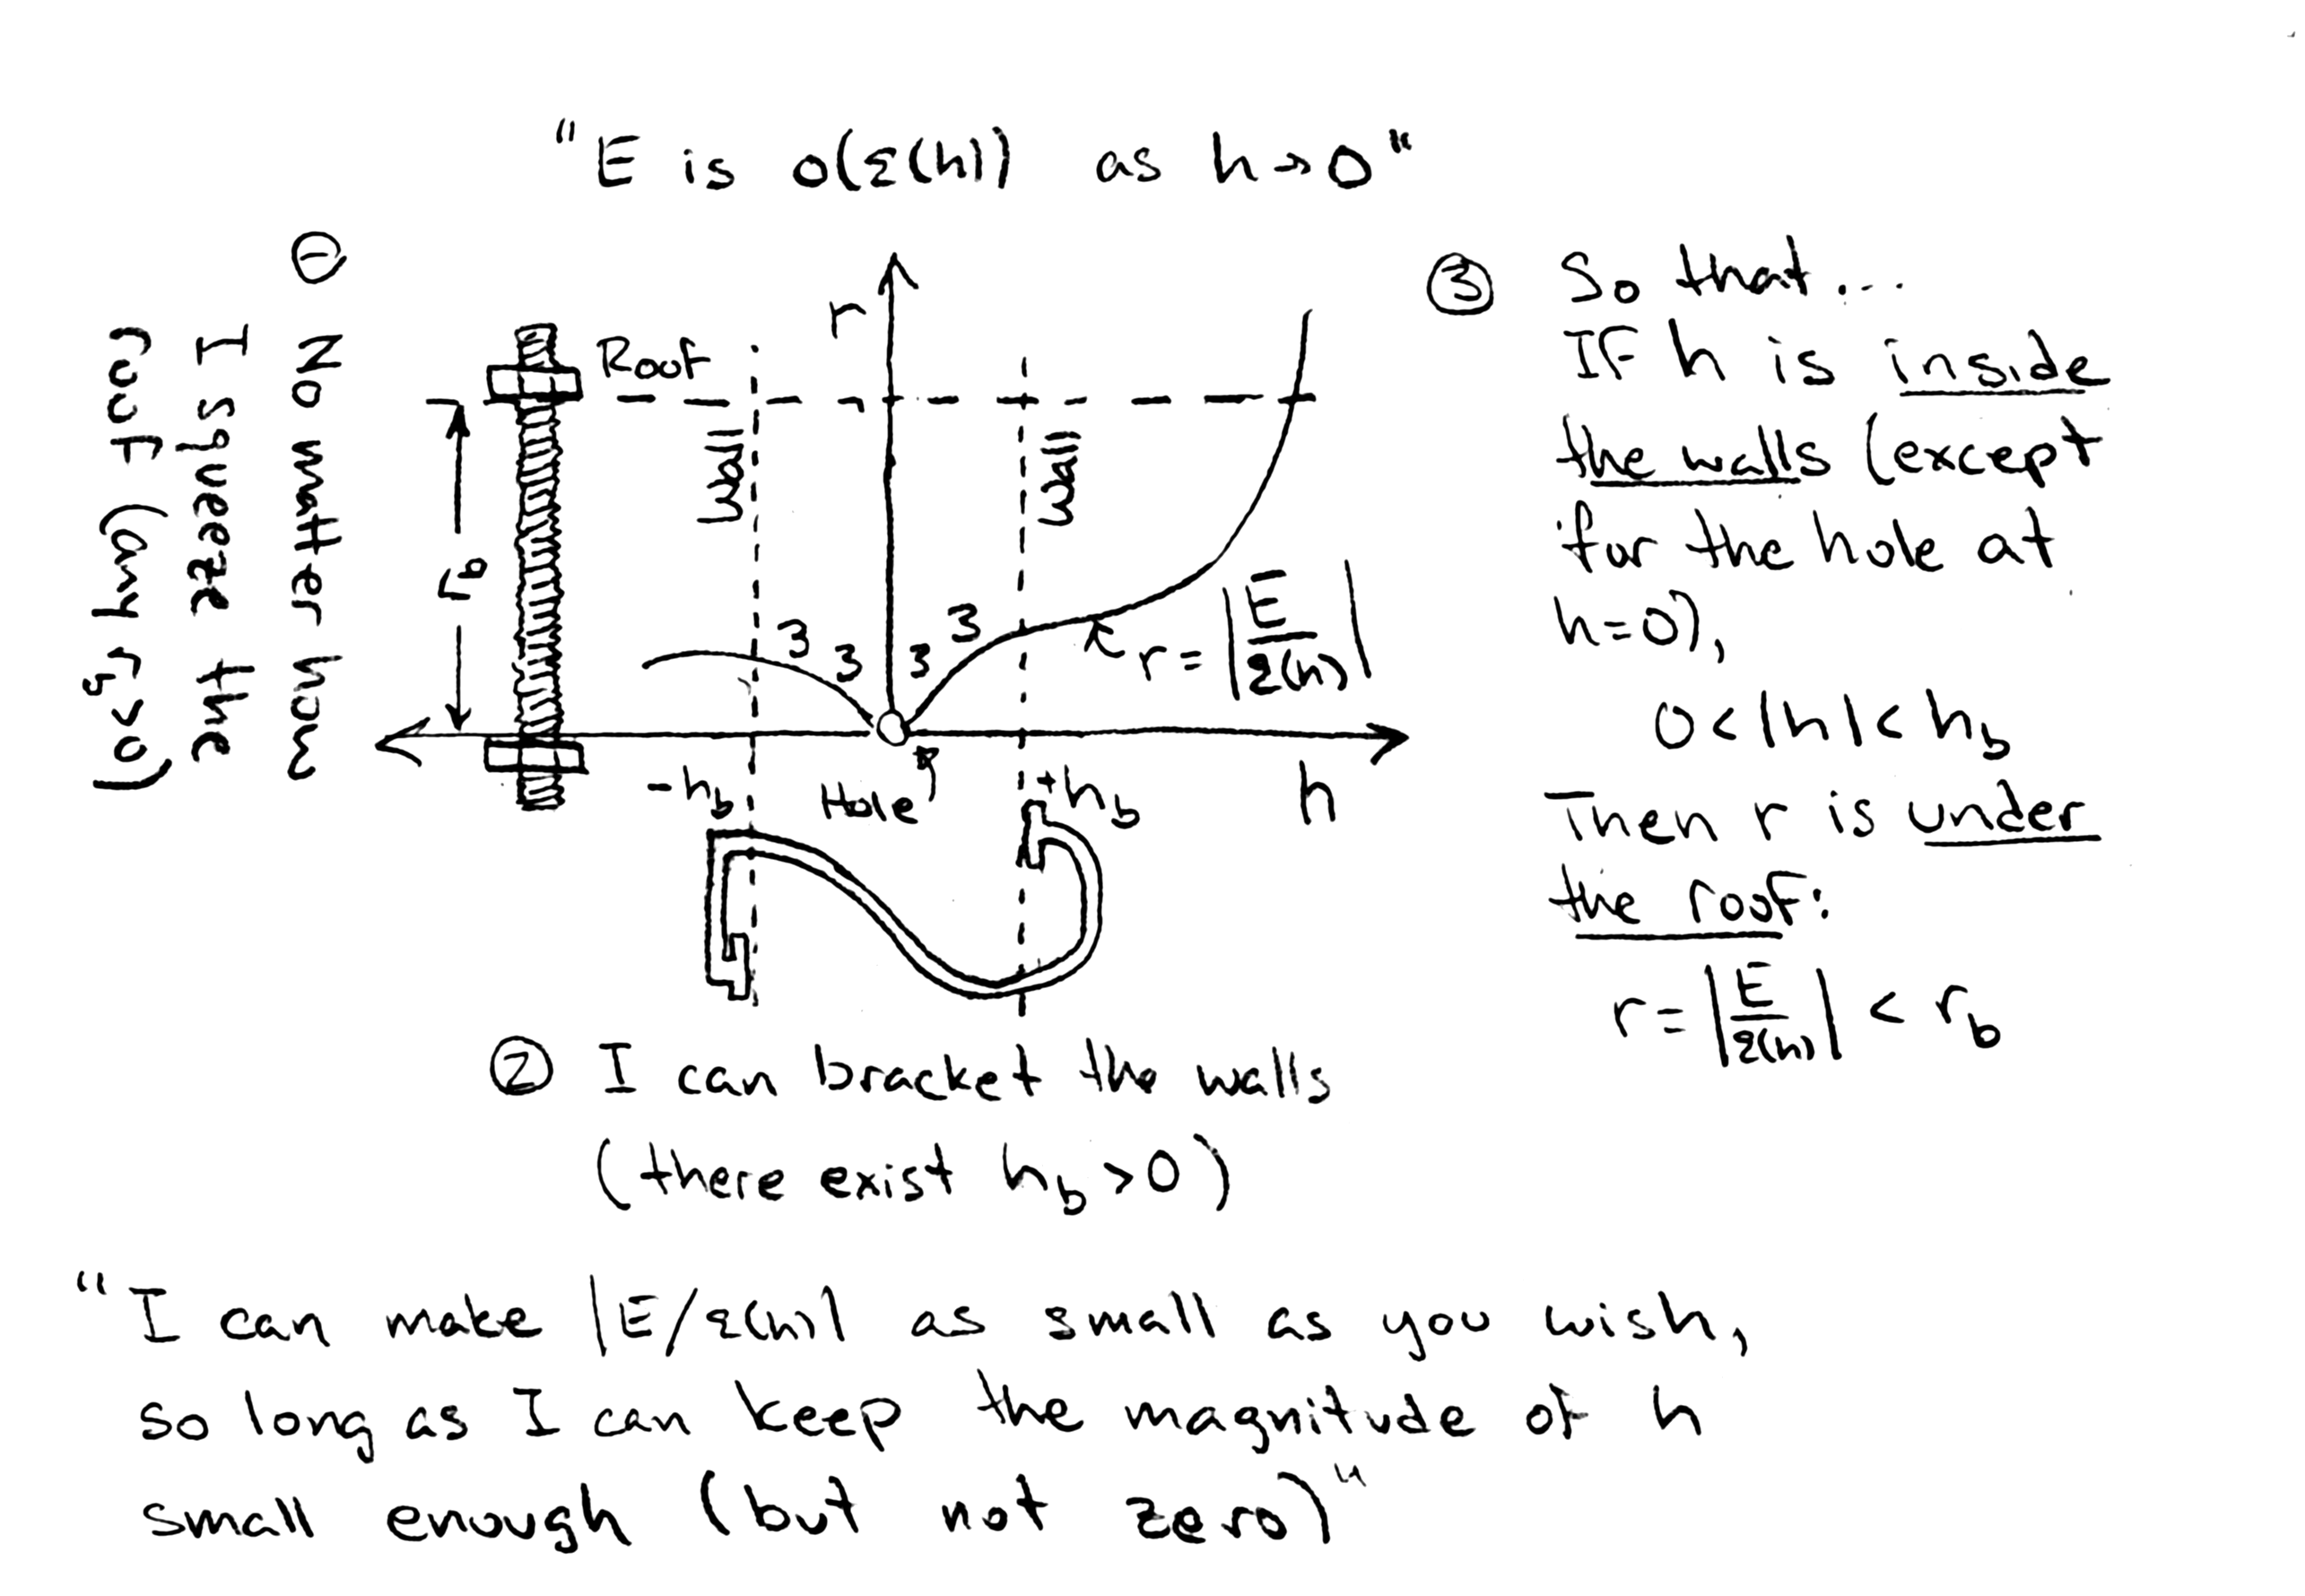 "E is o(ε(h)) as h→0"
① No matter how
I squeeze the
roof (any r_b>0)
r_b
Roof
Wall
Wall
r
3 3 3 3
r = |E/ε(h)|
-h_b
Hole
+h_b
h
② I can bracket the walls
(there exist h_b>0)
③ So that...
IF h is inside
the walls (except
for the hole at
h=0),
0<|h|<h_b
Then r is under
the roof:
r = |E/ε(h)| < r_b
"I can make |E/ε(h)| as small as you wish,
so long as I can keep the magnitude of h
small enough (but not zero)"